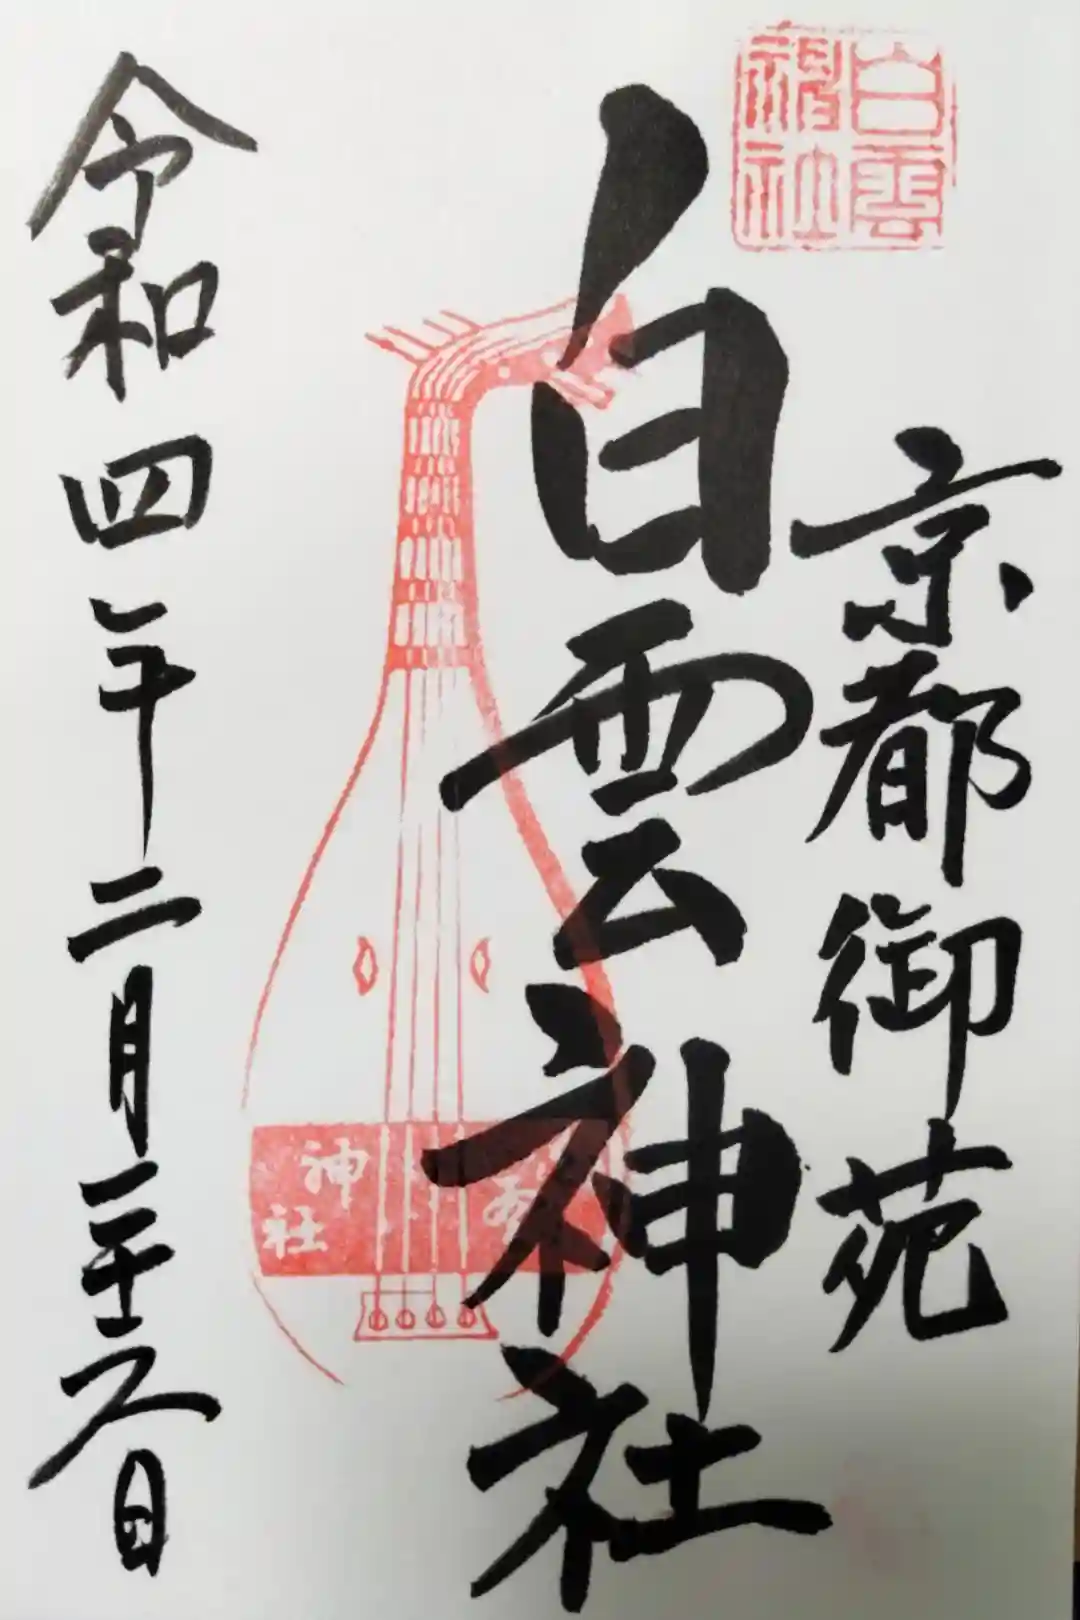 白雲
神社
京都御苑
白雲神社
神社
令和四年二月二十六日